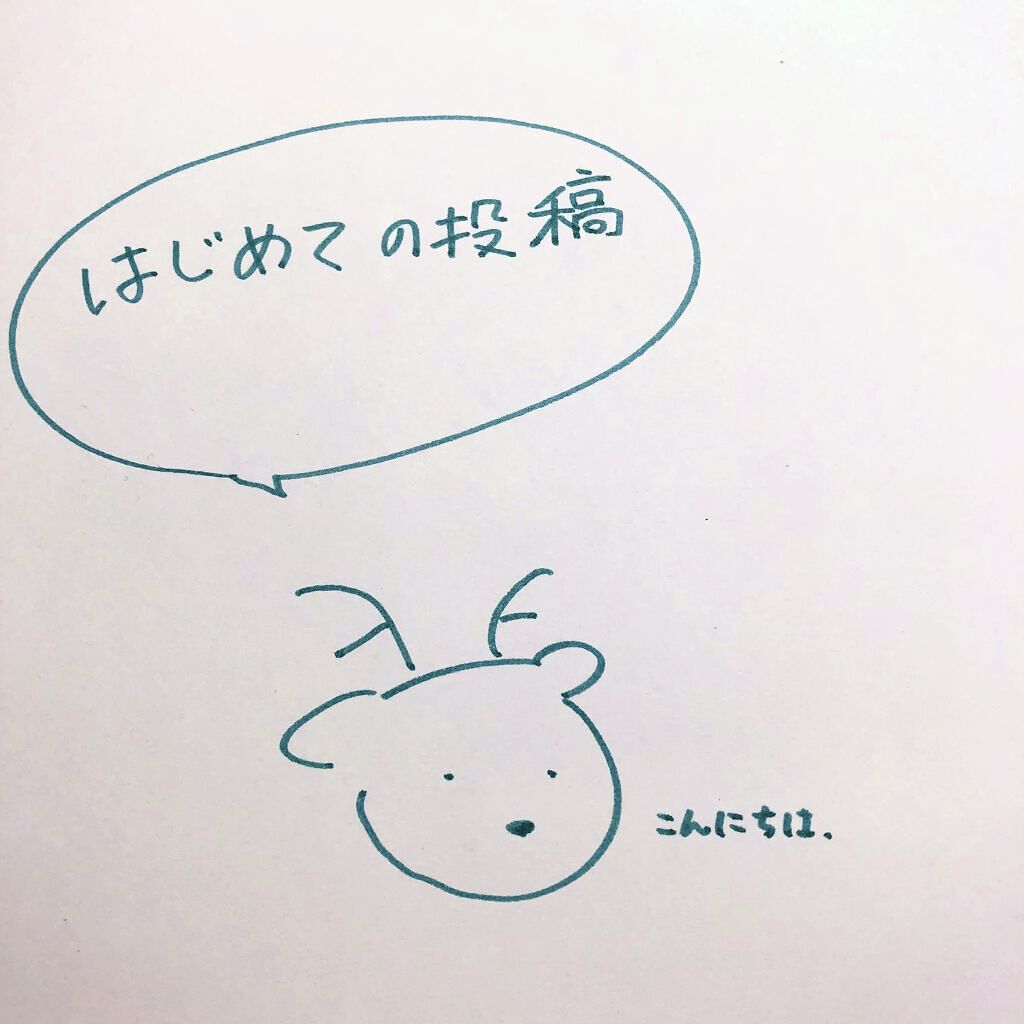 はじめての投稿
こんにちは.